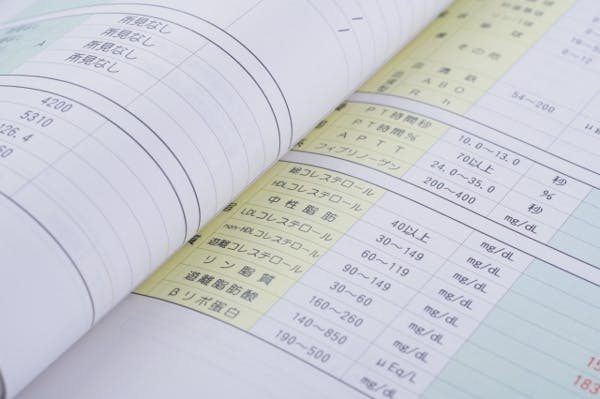 所見なし
所見なし
所見なし
A 所見なし
4200
5310
26.4
60
球
その他
鉄 54～200
ABO
Rh
PT時間秒 10.0～13.0 秒
PT時間% 70以上 %
APTT 24.0～35.0 秒
フィブリノーゲン 200～400 mg/dL
総コレステロール
HDLコレステロール 40以上 mg/dL
中性脂肪 30～149 mg/dL
LDLコレステロール 60～119 mg/dL
non-HDLコレステロール 90～149 mg/dL
遊離コレステロール 30～60 mg/dL
リン脂質 160～260 mg/dL
遊離脂肪酸 140～850 μEq/L
βリポ蛋白 190～500 mg/dL
15
183